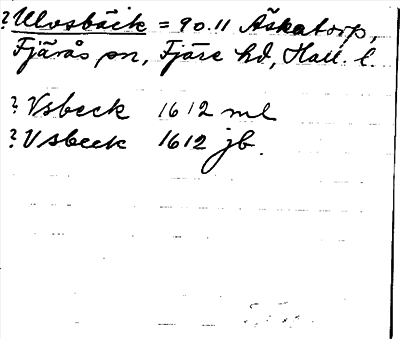 ? Ulvsbäck = 90.11 Äskatorp,
Fjärås sn, Fjäre hd, Hall. l.
? Vsbeck 1612 ml
? Vsbeck 1612 jb.